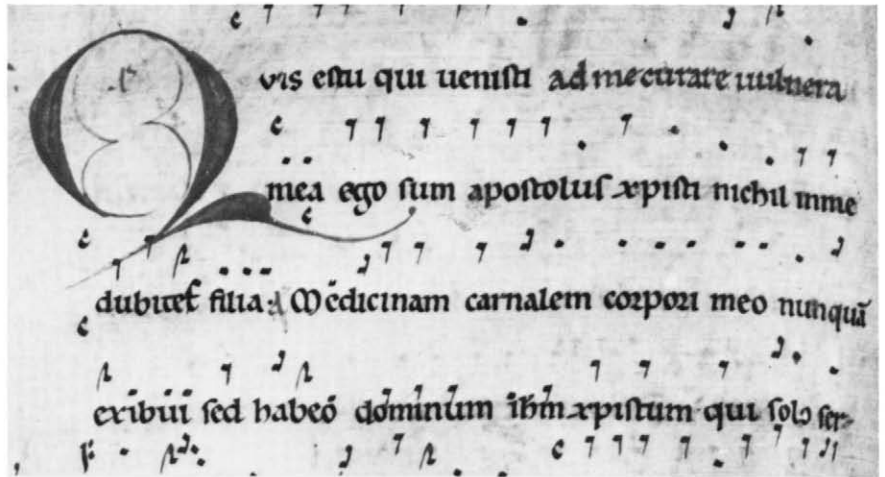 Quis estu qui uenisti ad me curare uulnera
mea ego sum apostolus xpisti nichil inme
dubitet filia: A Medicinam carnalem corpori meo nunquã
exibui sed habeo dominum ihm xpistum qui solo ser-